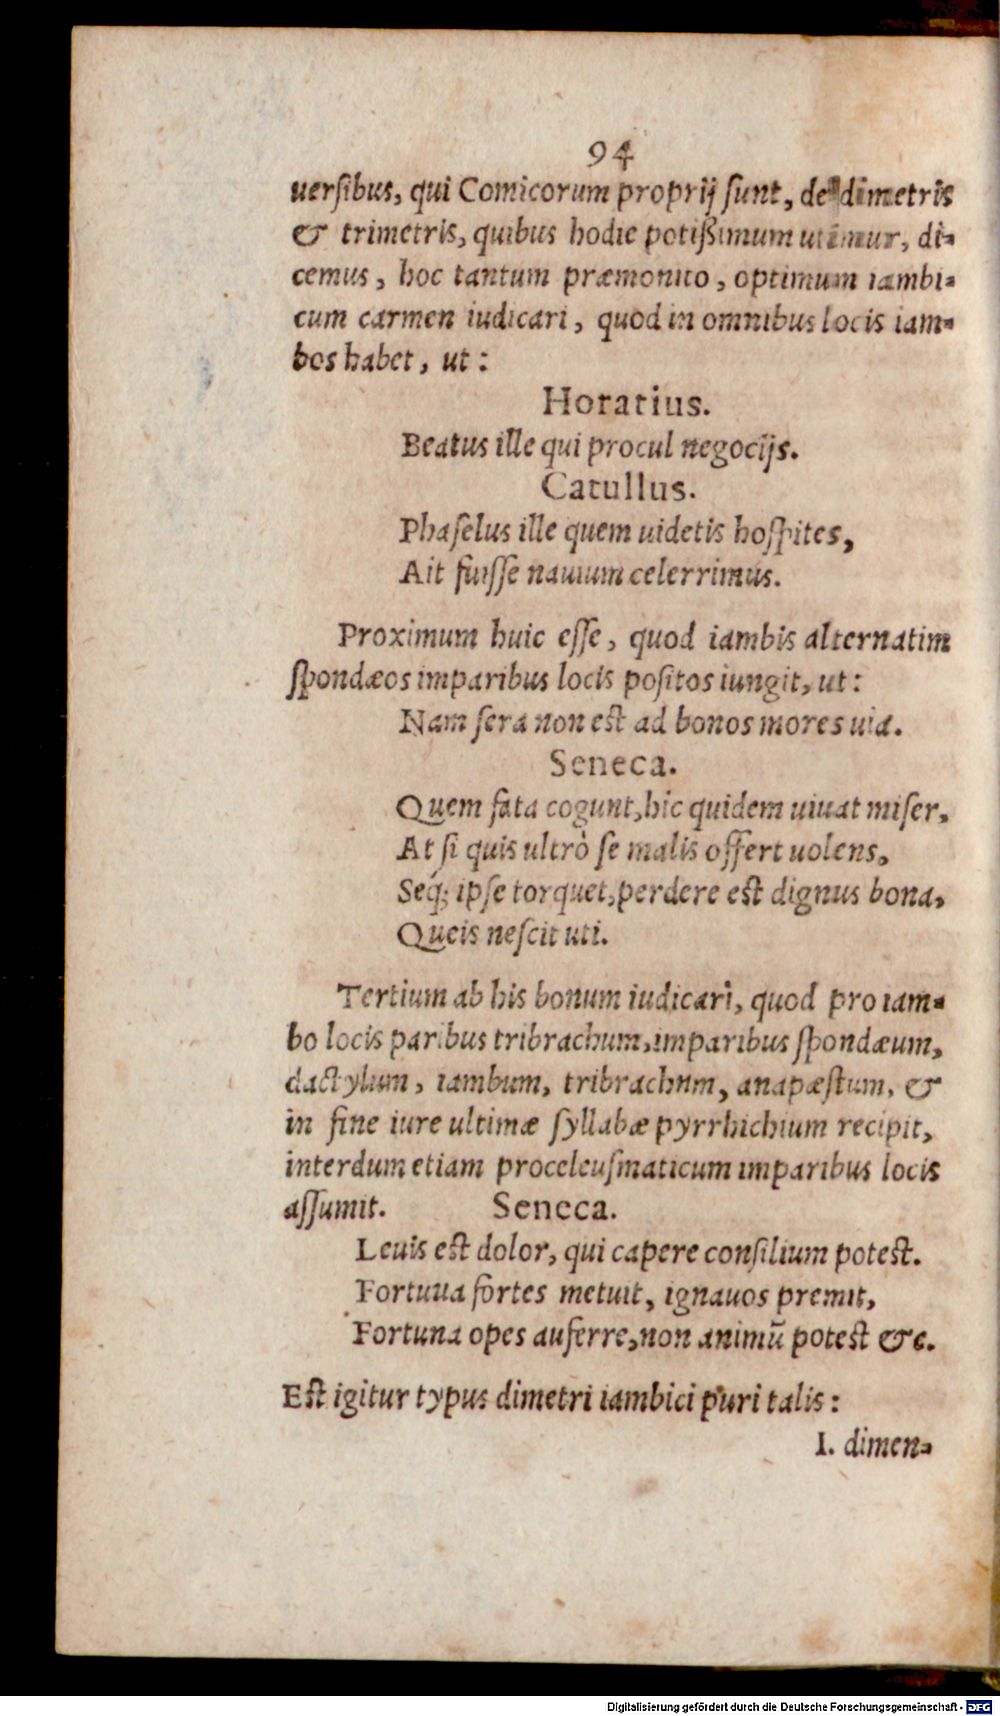 94
uersibus, qui Comicorum proprij sunt, de dimetris
& trimetris, quibus hodie potißimum utimur, di-
cemus, hoc tantum præmonito, optimum iambi-
cum carmen iudicari, quod in omnibus locis iam-
bos habet, ut:
Horatius.
Beatus ille qui procul negocijs.
Catullus.
Phaselus ille quem uidetis hospites,
Ait fuisse nauium celerrimus.
Proximum huic esse, quod iambis alternatim
spondæos imparibus locis positos iungit, ut:
Nam sera non est ad bonos mores uia.
Seneca.
Quem fata cogunt, hic quidem uiuat miser,
At si quis ultrò se malis offert uolens,
Seq́; ipse torquet, perdere est dignus bona,
Queis nescit uti.
Tertium ab his bonum iudicari, quod pro iam-
bo locis paribus tribrachum, imparibus spondæum,
dactylum, iambum, tribrachum, anapæstum, &
in fine iure ultimæ syllabæ pyrrhichium recipit,
interdum etiam proceleusmaticum imparibus locis
assumit. Seneca.
Leuis est dolor, qui capere consilium potest.
Fortuua fortes metuit, ignauos premit,
Fortuna opes auferre, non animū potest &c.
Est igitur typus dimetri iambici puri talis:
I. dimen-
Digitalisierung gefördert durch die Deutsche Forschungsgemeinschaft - DFG